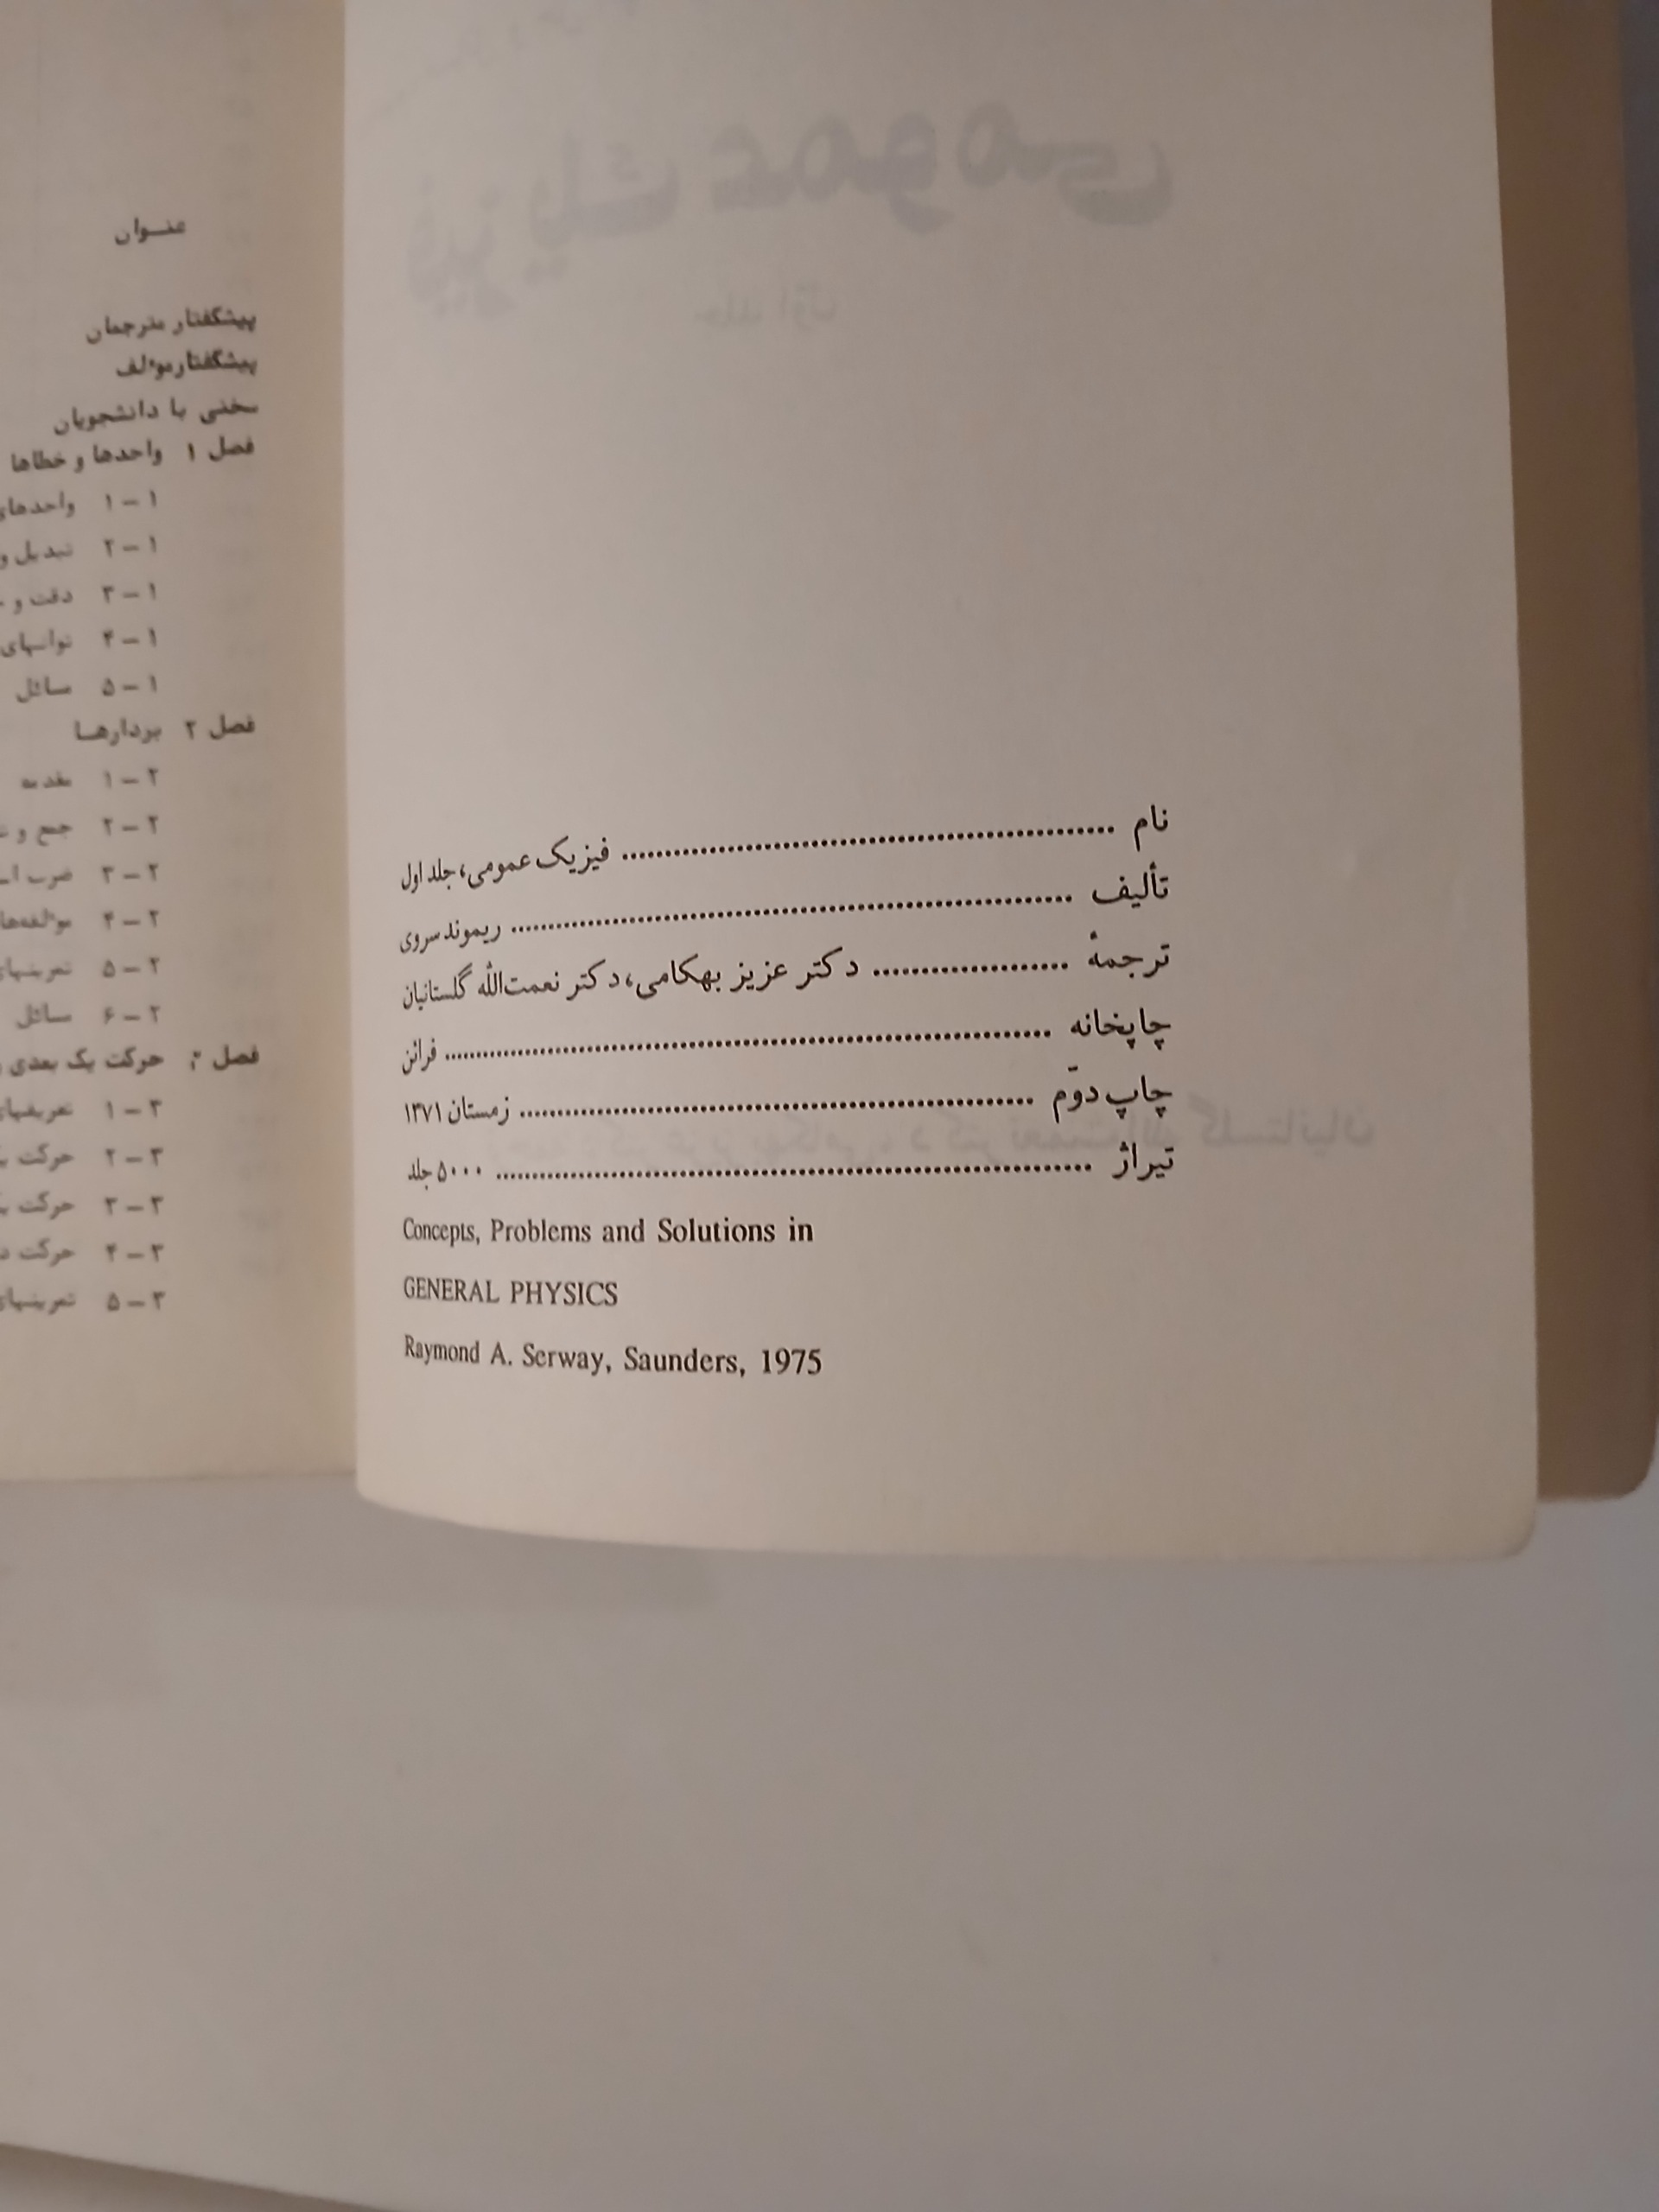 نام ........ فیزیک عمومی، جلد اول
تألیف ........ ریموند سروی
ترجمهٔ ........ دکتر عزیز بهکامی، دکتر نعمت‌الله گلستانیان
چاپخانه ........ فرائن
چاپ دوّم ........ زمستان ۱۳۷۱
تیراژ ........ ۵۰۰۰ جلد
Concepts, Problems and Solutions in
GENERAL PHYSICS
Raymond A. Serway, Saunders, 1975
عنوان
پیشگفتار مترجمان
پیشگفتار موٴلف
سخنی با دانشجویان
فصل ۱ واحدها و خطاها
۱ – ۱ واحدهای
۱ – ۲ تبدیل و
۱ – ۳ دقت و
۱ – ۴ توانهای
۱ – ۵ مسائل
فصل ۲ بردارها
۲ – ۱ مقدمه
۲ – ۲ جمع و
۲ – ۳ ضرب
۲ – ۴ موٴلفه‌های
۲ – ۵ تمرینهای
۲ – ۶ مسائل
فصل ۳ حرکت یک بعدی
۳ – ۱ تعریفهای
۳ – ۲ حرکت
۳ – ۳ حرکت
۳ – ۴ حرکت
۳ – ۵ تمرینهای